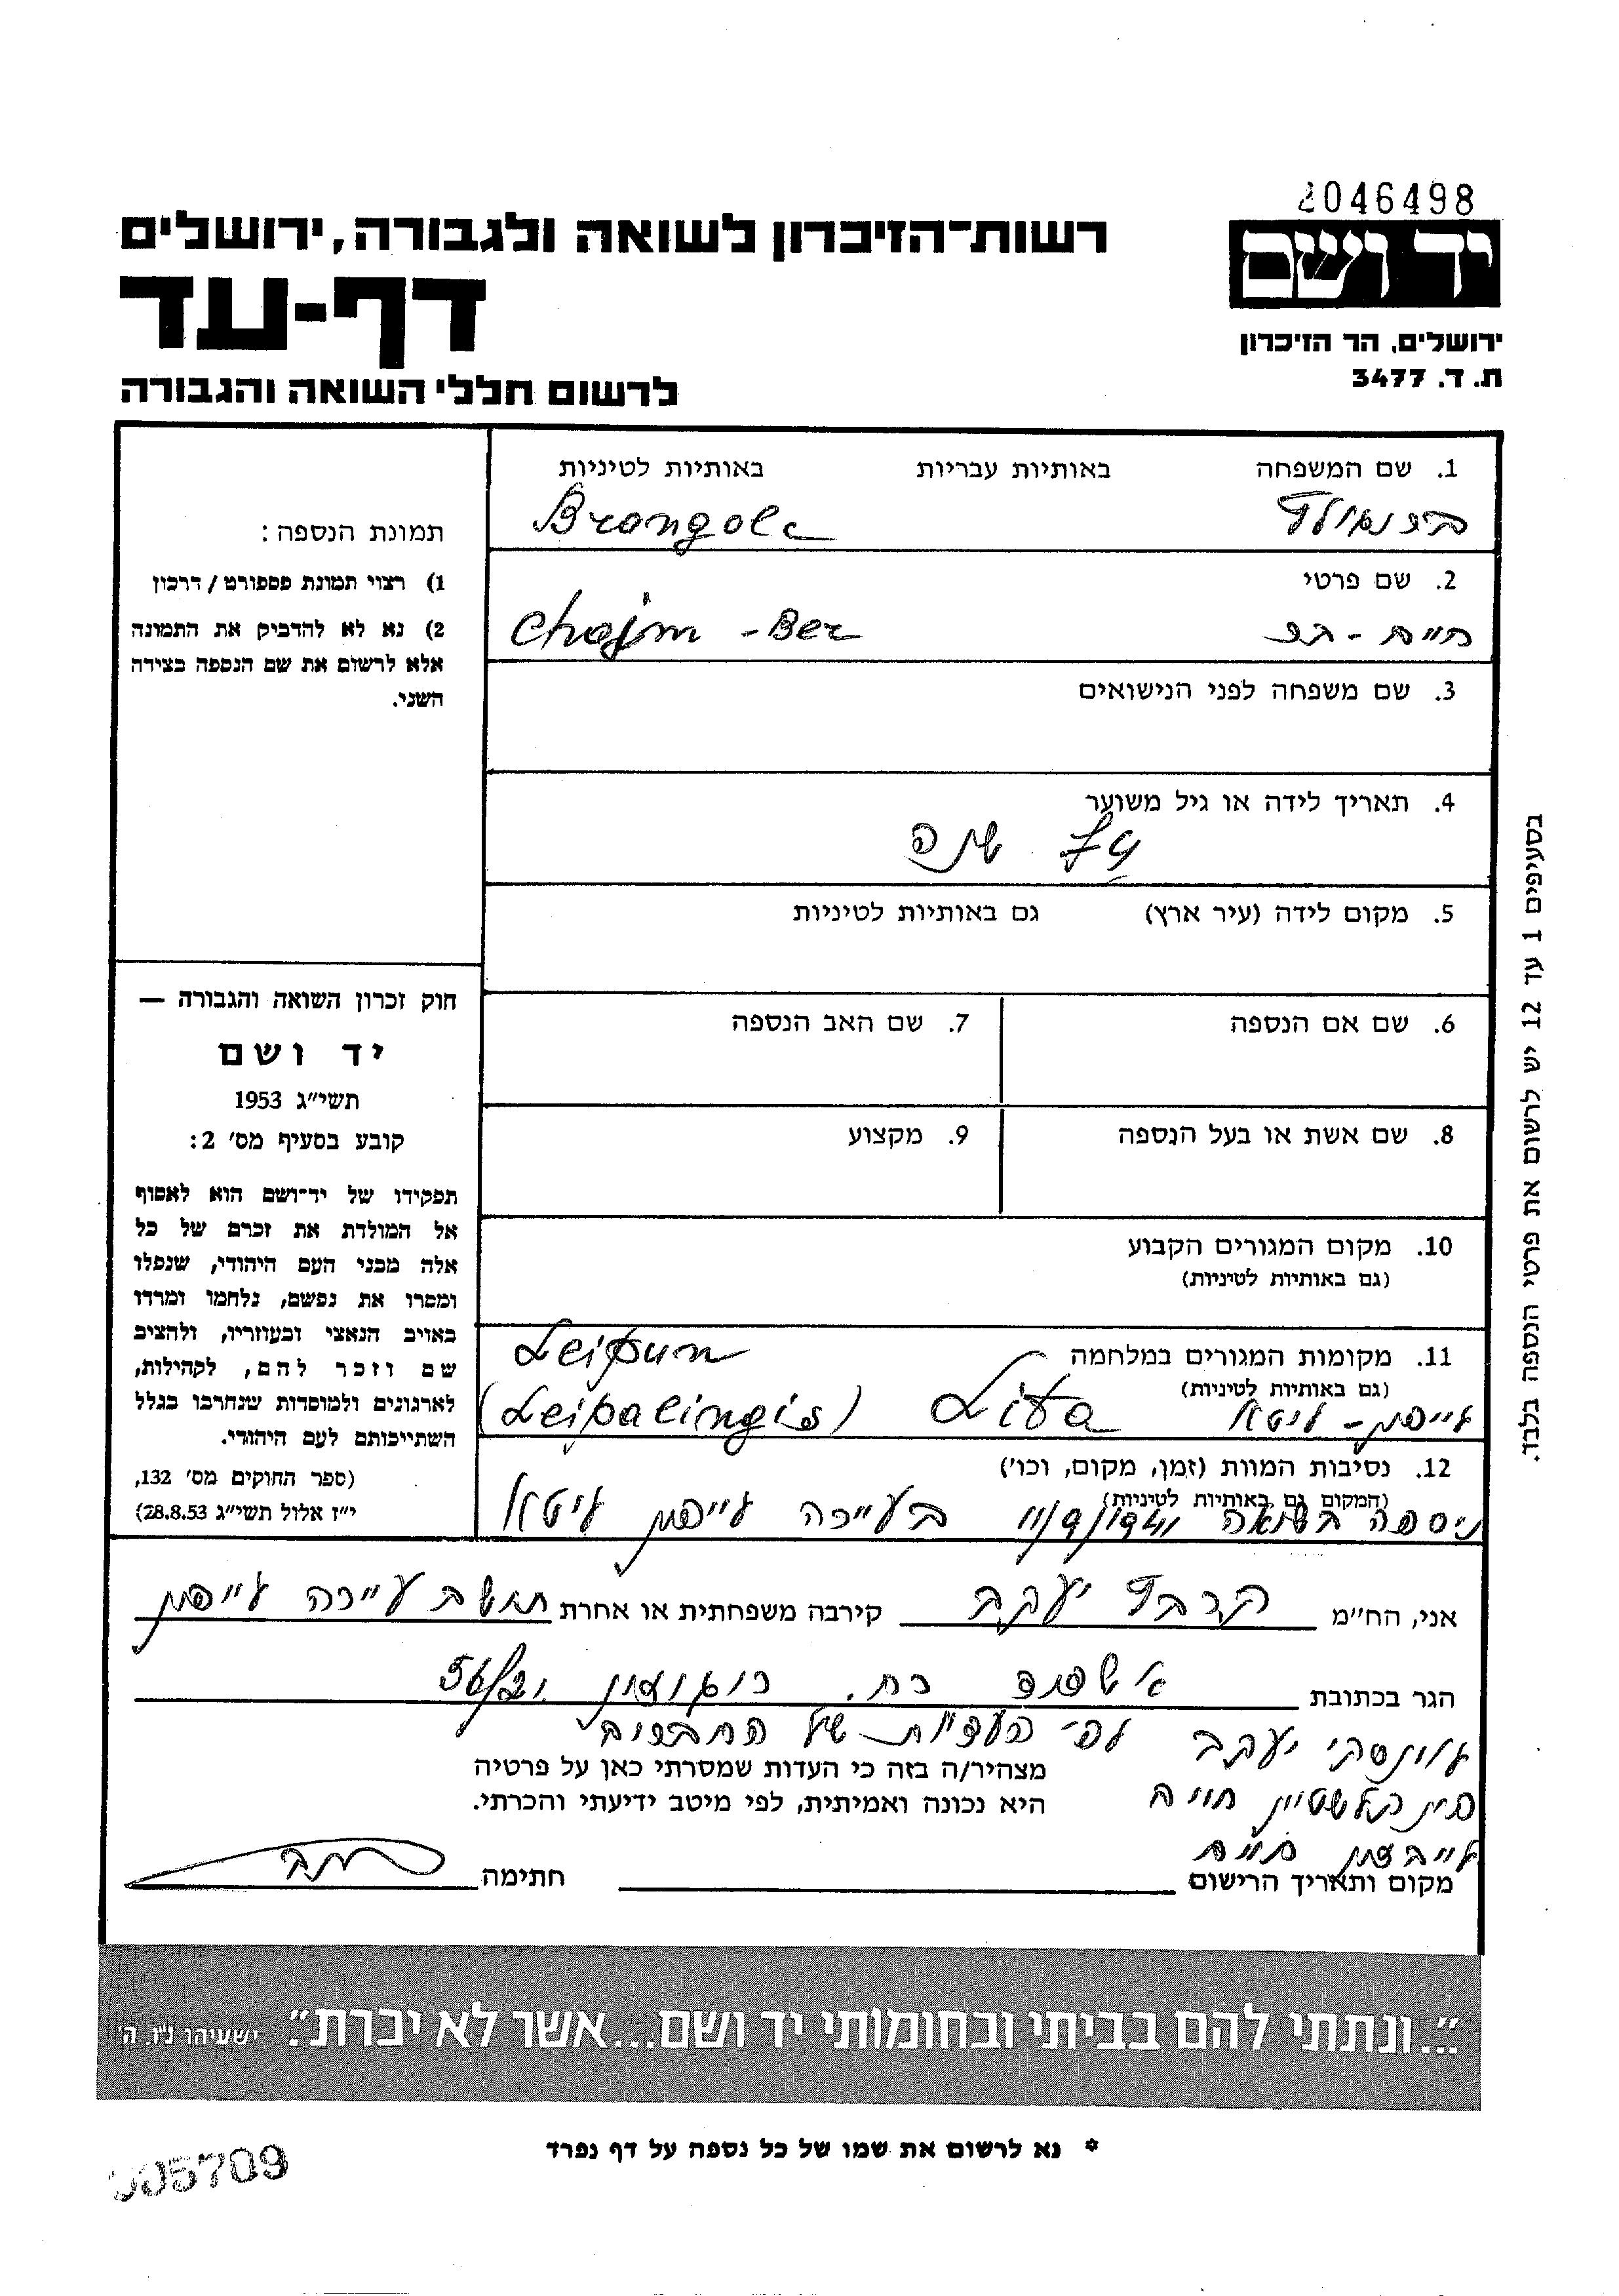 2046498
יד ושם
רשות־הזיכרון לשואה ולגבורה, ירושלים
דף-עד
לרשום חללי השואה והגבורה
ירושלים, הר הזיכרון
ת. ד. 3477
1. שם המשפחה באותיות עבריות באותיות לטיניות
2. שם פרטי
חיים - בר Chajm - Ber
3. שם משפחה לפני הנישואים
4. תאריך לידה או גיל משוער
שנה
5. מקום לידה (עיר ארץ) גם באותיות לטיניות
6. שם אם הנספה 7. שם האב הנספה
8. שם אשת או בעל הנספה 9. מקצוע
10. מקום המגורים הקבוע
(גם באותיות לטיניות)
11. מקומות המגורים במלחמה Leipun
(גם באותיות לטיניות)
לייפון - ליטא Lita (Leipalingis)
12. נסיבות המוות (זמן, מקום, וכו')
(המקום גם באותיות לטיניות)
ניספה בשואה 11/9/1941 בעיירה לייפון ליטא
תמונת הנספה:
1) רצוי תמונת פספורט/דרכון
2) נא לא להדביק את התמונה
אלא לרשום את שם הנספה בצידה
השני.
חוק זכרון השואה והגבורה —
יד ושם
תשי"ג 1953
קובע בסעיף מס' 2:
תפקידו של יד־ושם הוא לאסוף
אל המולדת את זכרם של כל
אלה מבני העם היהודי, שנפלו
ומסרו את נפשם, נלחמו ומרדו
באויב הנאצי ובעוזריו, ולהציב
שם וזכר להם, לקהילות,
לארגונים ולמוסדות שנחרבו בגלל
השתייכותם לעם היהודי.
(ספר החוקים מס' 132,
י"ז אלול תשי"ג 28.8.53)
בסעיפים 1 עד 12 יש לרשום את פרטי הנספה בלבד.
אני, הח"מ יעקב קירבה משפחתית או אחרת תושב עיירה לייפון
הגר בכתובת
יעקב לפי העדות של החברים
מצהיר/ה בזה כי העדות שמסרתי כאן על פרטיה
היא נכונה ואמיתית, לפי מיטב ידיעתי והכרתי.
חיים
מקום ותאריך הרישום חתימה
"...ונתתי להם בביתי ובחומותי יד ושם...אשר לא יכרת". ישעיהו נ"ו, ה'
* נא לרשום את שמו של כל נספה על דף נפרד
005709